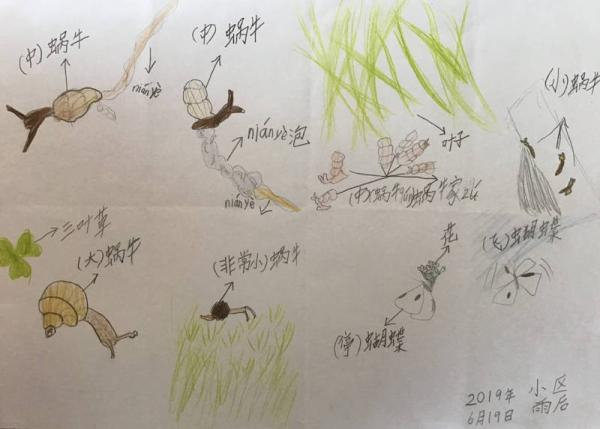 (中)蜗牛
niányè
(中)蜗牛
niányè泡
niányè
叶子
(小)蜗牛
三叶草
(大)蜗牛
(非常小)蜗牛
花
(停)蝴蝶
(飞)蝴蝶
2019年
6月19日
小区
雨后